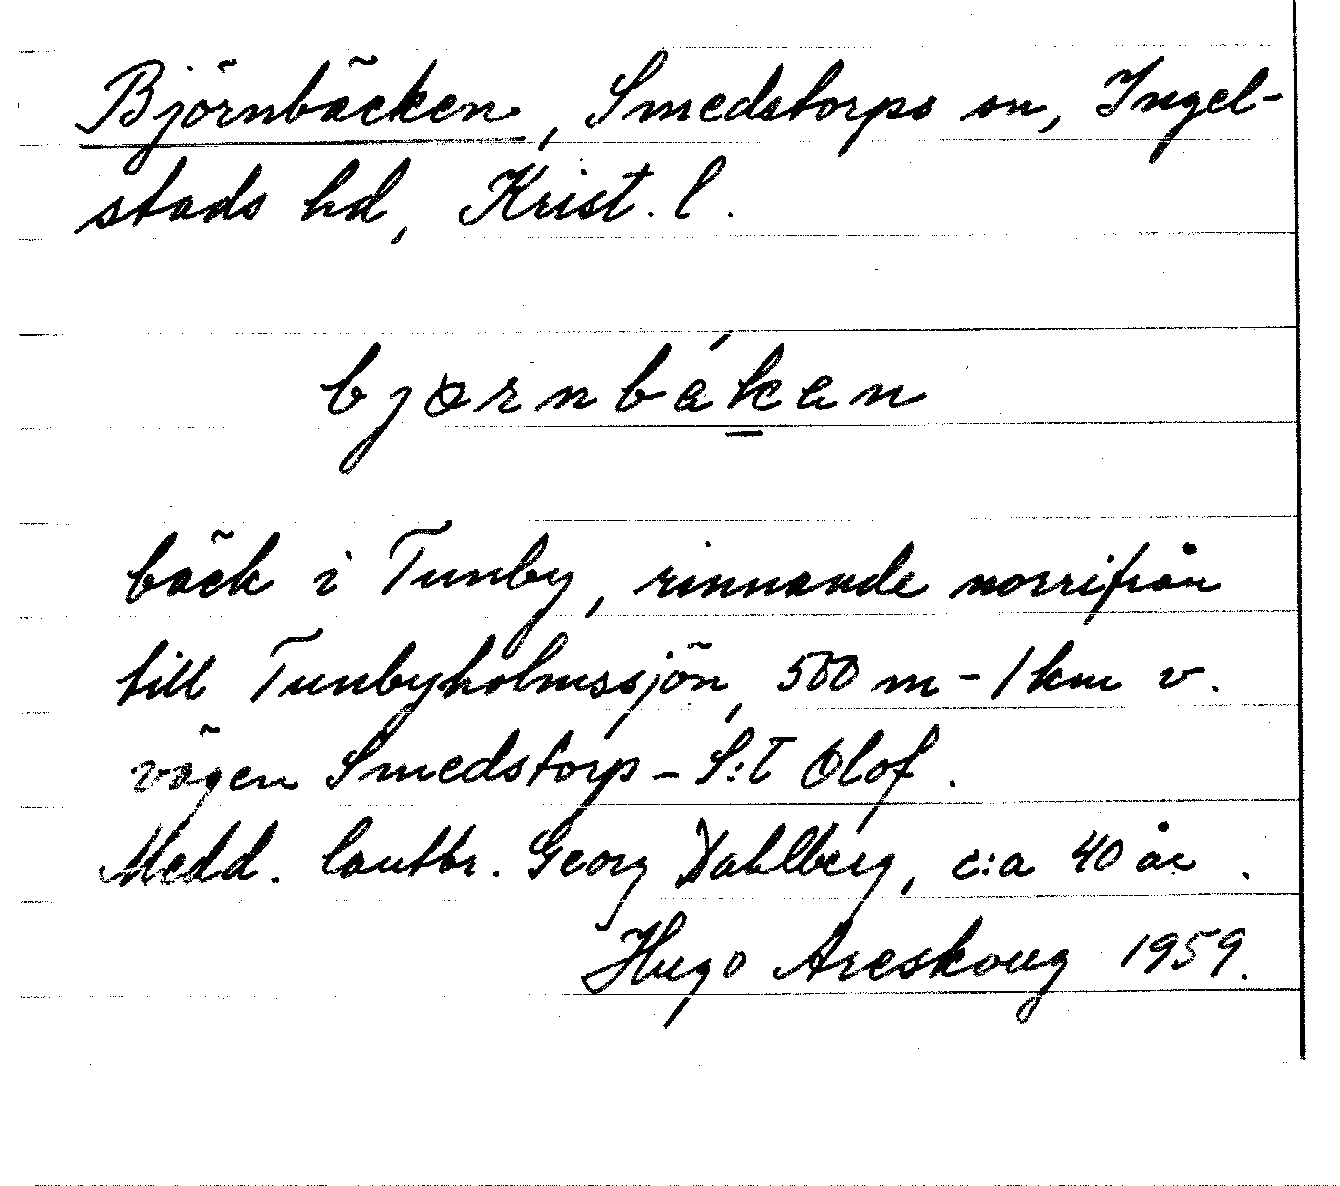 Björnbäcken, Smedstorps sn, Ingel-
stads hd, Krist. l.
bjørnbákan
bäck i Tunby, rinnande norrifrån
till Tunbyholmssjön, 500 m - 1 km v.
vägen Smedstorp - S:t Olof.
Medd. lantbr. Georg Dahlberg, c:a 40 år.
Hugo Areskoug 1959.